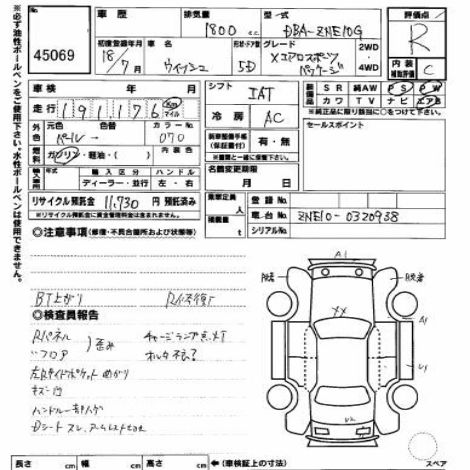 ※必ず油性ボールペンをご使用下さい。水性ボールペンは使用できません。
45069
車歴
排気量
1800 c.c.
型式
DBA-ZNE10G
初度登録年月
18/7月
ウィッシュ
形状・ドア数
5D
グレード
Xエアロスポーツ
パッケージ
2WD
4WD
評価点
R
内装
補助評価
C
車検 年 月
走行 191,176 Km マイル
シフト
IAT
冷房
AC
装備
SR 純AW PS PW
カワ TV ナビ エアB
※純正品に限り装備に○をつけて下さい。
外色
元色 色替 カラーNo.
パール→ 070
燃料
ガソリン・軽油・( )
内装色
輸入車
輸入区分 ハンドル
ディーラー・並行 左・右
新車整備手帳
(保証書付)
有・無
※書類と一緒に保管下さい。
名義変更期限
月 日
セールスポイント
リサイクル預託金 11,730円 預託済み
※リサイクル預託金に資金管理料金は含まれません。
乗車定員
人
積載量
t
登録No.
車台No. ZNE10-0320938
シリアルNo.
◎注意事項(修復・不具合箇所および状態等)
BT上がり R修復
◎検査員報告
Rパネル
〃フロア
歪み
チャージランプ点灯
オルタ不良?
左Rサイドポケット曲がり
キズ凹
A1
XX
A1
U1
U2
スペア
長さ cm 幅 cm 高さ cm ←(車検証上の寸法)